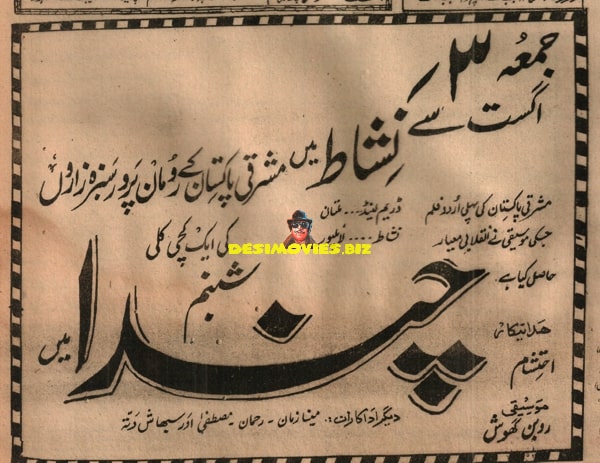 جمعہ ۳؍
اگست سے نشاط میں مشرقی پاکستان کے رومان پرور سبزہ زاروں
مشرقی پاکستان کی پہلی اردو فلم
جسکی موسیقی نے انقلابی معیار
حاصل کیا ہے۔
ڈریم لینڈ .... ملتان
نشاط .... لائلپور
کی ایک کچی کلی
DESIMOVIES.BIZ
شبنم
چندا
میں
ہدایتکار
احتشام
موسیقی
روبن گھوش
دیگر اداکاران :۔ مینا زمان - رحمان - مصطفیٰ اور سبھاش دتہ